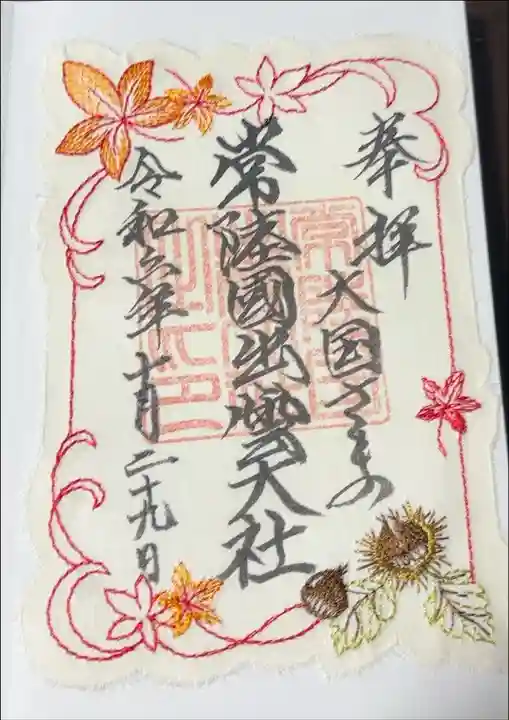 奉拝
大国さまの
常陸國出雲大社
令和六年十月二十九日